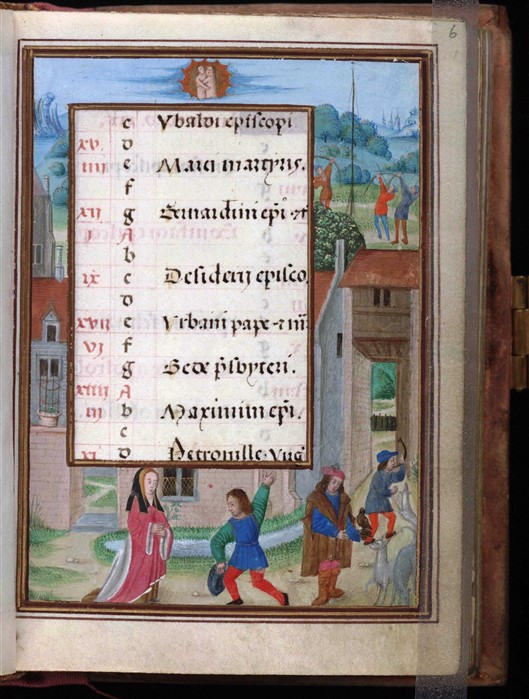 6
c Vbaldi episcopi
xv. d
iiii e Marci martyris.
f
xii g Bernardin epi. ⁊ cf
i A
b
ix c Desiderij episco.
d
xvii e Vrbani pape ⁊ m̄
vi f
g Bede p̄sbyteri.
xiiii A
iii b Maximin ep̄i.
c
xi d Petronille virg